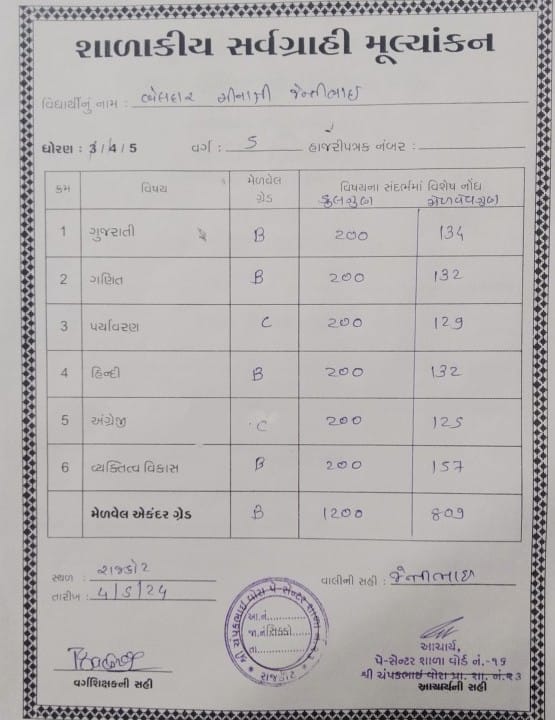 શાળાકીય સર્વગ્રાહી મૂલ્યાંકન
વિદ્યાર્થીનું નામ : બેલદાર મીનાક્ષી જેન્તીભાઇ
ધોરણ : 3/4/5 વર્ગ : 5 હાજરીપત્રક નંબર :
ક્રમ વિષય મેળવેલ ગ્રેડ વિષયના સંદર્ભમાં વિશેષ નોંધ
કુલગુણ મેળવેલગુણ
1 ગુજરાતી B 200 134
2 ગણિત B 200 132
3 પર્યાવરણ C 200 129
4 હિન્દી B 200 132
5 અંગ્રેજી C 200 125
6 વ્યક્તિત્વ વિકાસ B 200 157
મેળવેલ એકંદર ગ્રેડ B 1200 809
સ્થળ : રાજકોટ વાલીની સહી : જેન્તીભાઇ
તારીખ : 4/5/24
શ્રી ચંપકભાઈ વોરા પે-સેન્ટર શાળા નં. ૧૩
આ.નં.
જા.નં. સિક્કો
તા.
રાજકોટ
વર્ગશિક્ષકની સહી
આચાર્ય,
પે-સેન્ટર શાળા વોર્ડ નં.-૧૬
શ્રી ચંપકભાઇ વોરા પ્રા. શા. નં.૧૩
આચાર્યની સહી